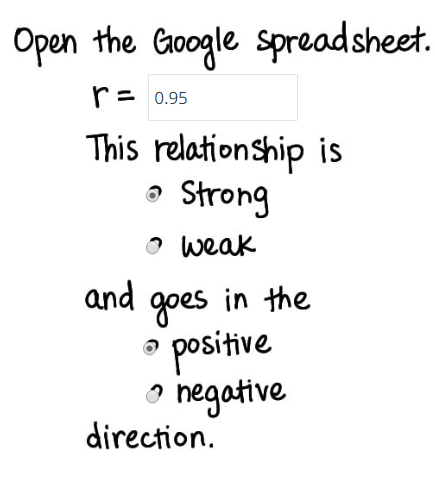 Open the Google spreadsheet.
r = 0.95
This relationship is
Strong
weak
and goes in the
positive
negative
direction.